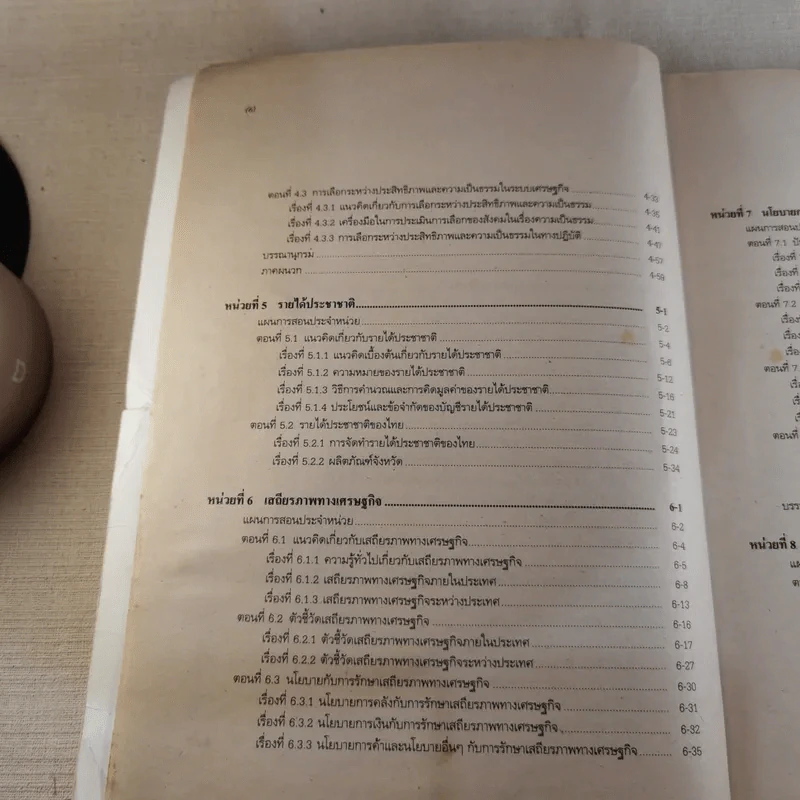 ตอนที่ 4.3 การเลือกระหว่างประสิทธิภาพและความเป็นธรรมในระบบเศรษฐกิจ
เรื่องที่ 4.3.1 แนวคิดเกี่ยวกับการเลือกระหว่างประสิทธิภาพและความเป็นธรรม 4-35
เรื่องที่ 4.3.2 เครื่องมือในการประเมินการเลือกของสังคมในเรื่องความเป็นธรรม 4-41
เรื่องที่ 4.3.3 การเลือกระหว่างประสิทธิภาพและความเป็นธรรมในทางปฏิบัติ 4-47
บรรณานุกรม 4-57
ภาคผนวก 4-59
หน่วยที่ 5 รายได้ประชาชาติ 5-1
แผนการสอนประจำหน่วย 5-2
ตอนที่ 5.1 แนวคิดเกี่ยวกับรายได้ประชาชาติ 5-4
เรื่องที่ 5.1.1 แนวคิดเบื้องต้นเกี่ยวกับรายได้ประชาชาติ 5-6
เรื่องที่ 5.1.2 ความหมายของรายได้ประชาชาติ 5-12
เรื่องที่ 5.1.3 วิธีการคำนวณและการคิดมูลค่าของรายได้ประชาชาติ 5-16
เรื่องที่ 5.1.4 ประโยชน์และข้อจำกัดของบัญชีรายได้ประชาชาติ 5-21
ตอนที่ 5.2 รายได้ประชาชาติของไทย 5-23
เรื่องที่ 5.2.1 การจัดทำรายได้ประชาชาติของไทย 5-24
เรื่องที่ 5.2.2 ผลิตภัณฑ์จังหวัด 5-34
หน่วยที่ 6 เสถียรภาพทางเศรษฐกิจ 6-1
แผนการสอนประจำหน่วย 6-2
ตอนที่ 6.1 แนวคิดเกี่ยวกับเสถียรภาพทางเศรษฐกิจ 6-4
เรื่องที่ 6.1.1 ความรู้ทั่วไปเกี่ยวกับเสถียรภาพทางเศรษฐกิจ 6-5
เรื่องที่ 6.1.2 เสถียรภาพทางเศรษฐกิจภายในประเทศ 6-8
เรื่องที่ 6.1.3 เสถียรภาพทางเศรษฐกิจระหว่างประเทศ 6-13
ตอนที่ 6.2 ตัวชี้วัดเสถียรภาพทางเศรษฐกิจ 6-16
เรื่องที่ 6.2.1 ตัวชี้วัดเสถียรภาพทางเศรษฐกิจภายในประเทศ 6-17
เรื่องที่ 6.2.2 ตัวชี้วัดเสถียรภาพทางเศรษฐกิจระหว่างประเทศ 6-27
ตอนที่ 6.3 นโยบายกับการรักษาเสถียรภาพทางเศรษฐกิจ 6-30
เรื่องที่ 6.3.1 นโยบายการคลังกับการรักษาเสถียรภาพทางเศรษฐกิจ 6-31
เรื่องที่ 6.3.2 นโยบายการเงินกับการรักษาเสถียรภาพทางเศรษฐกิจ 6-32
เรื่องที่ 6.3.3 นโยบายการค้าและนโยบายอื่นๆ กับการรักษาเสถียรภาพทางเศรษฐกิจ 6-35
หน่วยที่ 7 นโยบาย
แผนการสอน
ตอนที่ 7.1
เรื่องที่
เรื่องที่
เรื่องที่
ตอนที่ 7.2
เรื่อง
เรื่อง
เรื่อง
ตอนที่ 7.
ตอนที่
บรร
หน่วยที่ 8